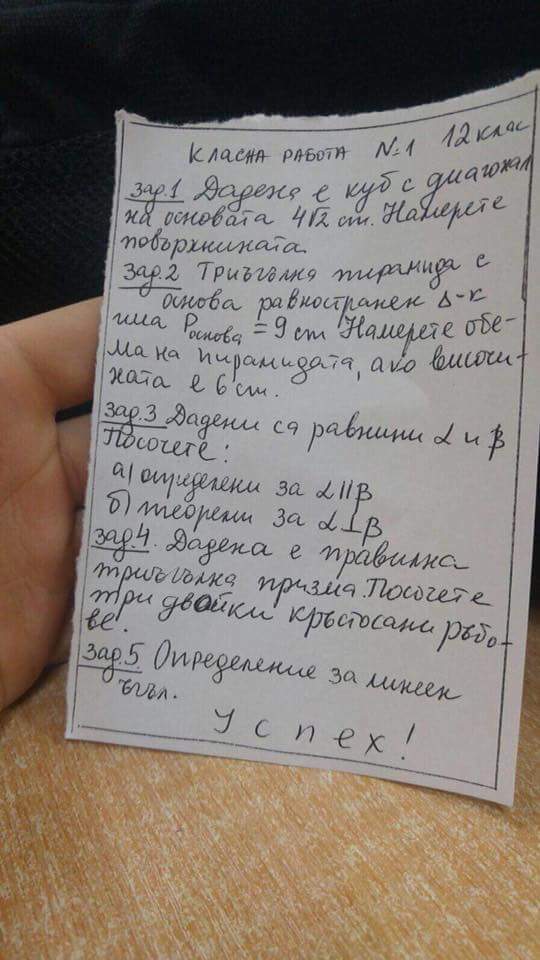 Класна работа №1 12 клас
зад.1 Дадена е куб с диагонал
на основата 4√2 cm. Намерете
повърхнината.
зад.2 Триъгълна пирамида с
основа равностранен Δ-к
има Pоснова = 9 cm Намерете обе-
ма на пирамидата, ако височи-
ната е 6 cm.
зад.3 Дадени са равнини α и β
Посочете:
а) определени за α||β
б) теореми за α⊥β
зад.4. Дадена е правилна
триъгълна призма. Посочете
три двойки кръстосани ръбо-
ве.
зад.5. Определение за линеен
ъгъл.
Успех!